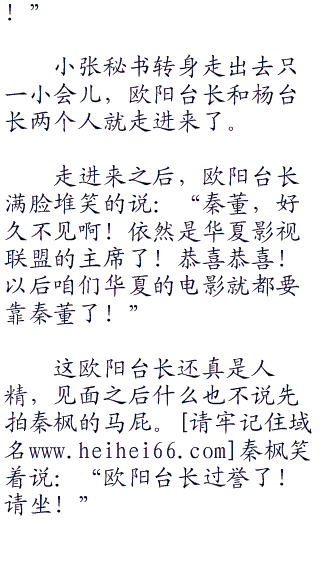 ！”
小张秘书转身走出去只
一小会儿，欧阳台长和杨台
长两个人就走进来了。
走进来之后，欧阳台长
满脸堆笑的说：“秦董，好
久不见啊！依然是华夏影视
联盟的主席了！恭喜恭喜！
以后咱们华夏的电影就都要
靠秦董了！”
这欧阳台长还真是人
精，见面之后什么也不说先
拍秦枫的马屁。[请牢记住域
名www.heihei66.com]秦枫笑
着说：“欧阳台长过誉了！
请坐！”